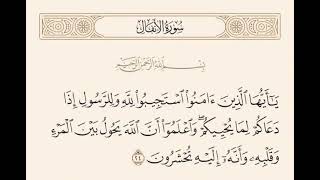 سُورَةُ الأَنفَالِ
بِسْمِ اللَّهِ الرَّحْمَٰنِ الرَّحِيمِ
يَـٰٓأَيُّهَا ٱلَّذِينَ ءَامَنُوا۟ ٱسْتَجِيبُوا۟ لِلَّهِ وَلِلرَّسُولِ إِذَا
دَعَاكُمْ لِمَا يُحْيِيكُمْ ۖ وَٱعْلَمُوٓا۟ أَنَّ ٱللَّهَ يَحُولُ بَيْنَ ٱلْمَرْءِ
وَقَلْبِهِۦ وَأَنَّهُۥٓ إِلَيْهِ تُحْشَرُونَ ٢٤